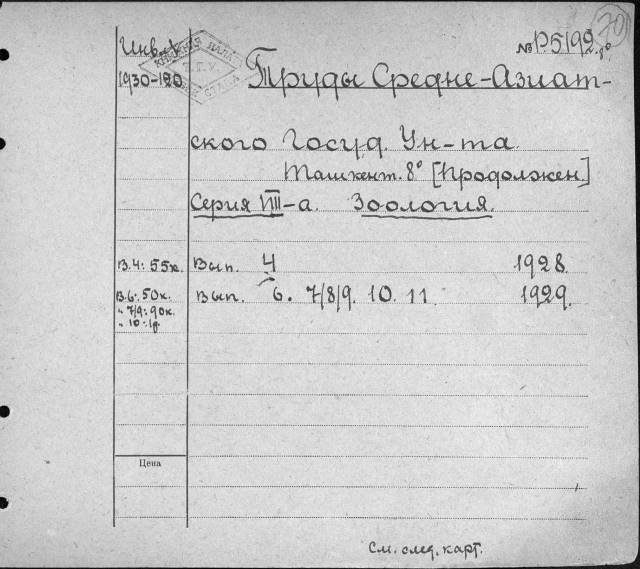 70
Инв. №
№ Р5192 8°
КНИЖНАЯ ПАЛАТА
Т.Г.У.
1930-120
Труды Средне-Азиат-
ского Госуд. Ун-та
Ташкент. 8° [Продолжен.]
Серия VIII-а. Зоология.
В.4: 55к. Вып. 4 1928
В.6: 50к. Вып. 6. 7/8/9. 10. 11. 1929.
" 7/9: 90к.
" 10: 1р.
Цена
См. след. карт.